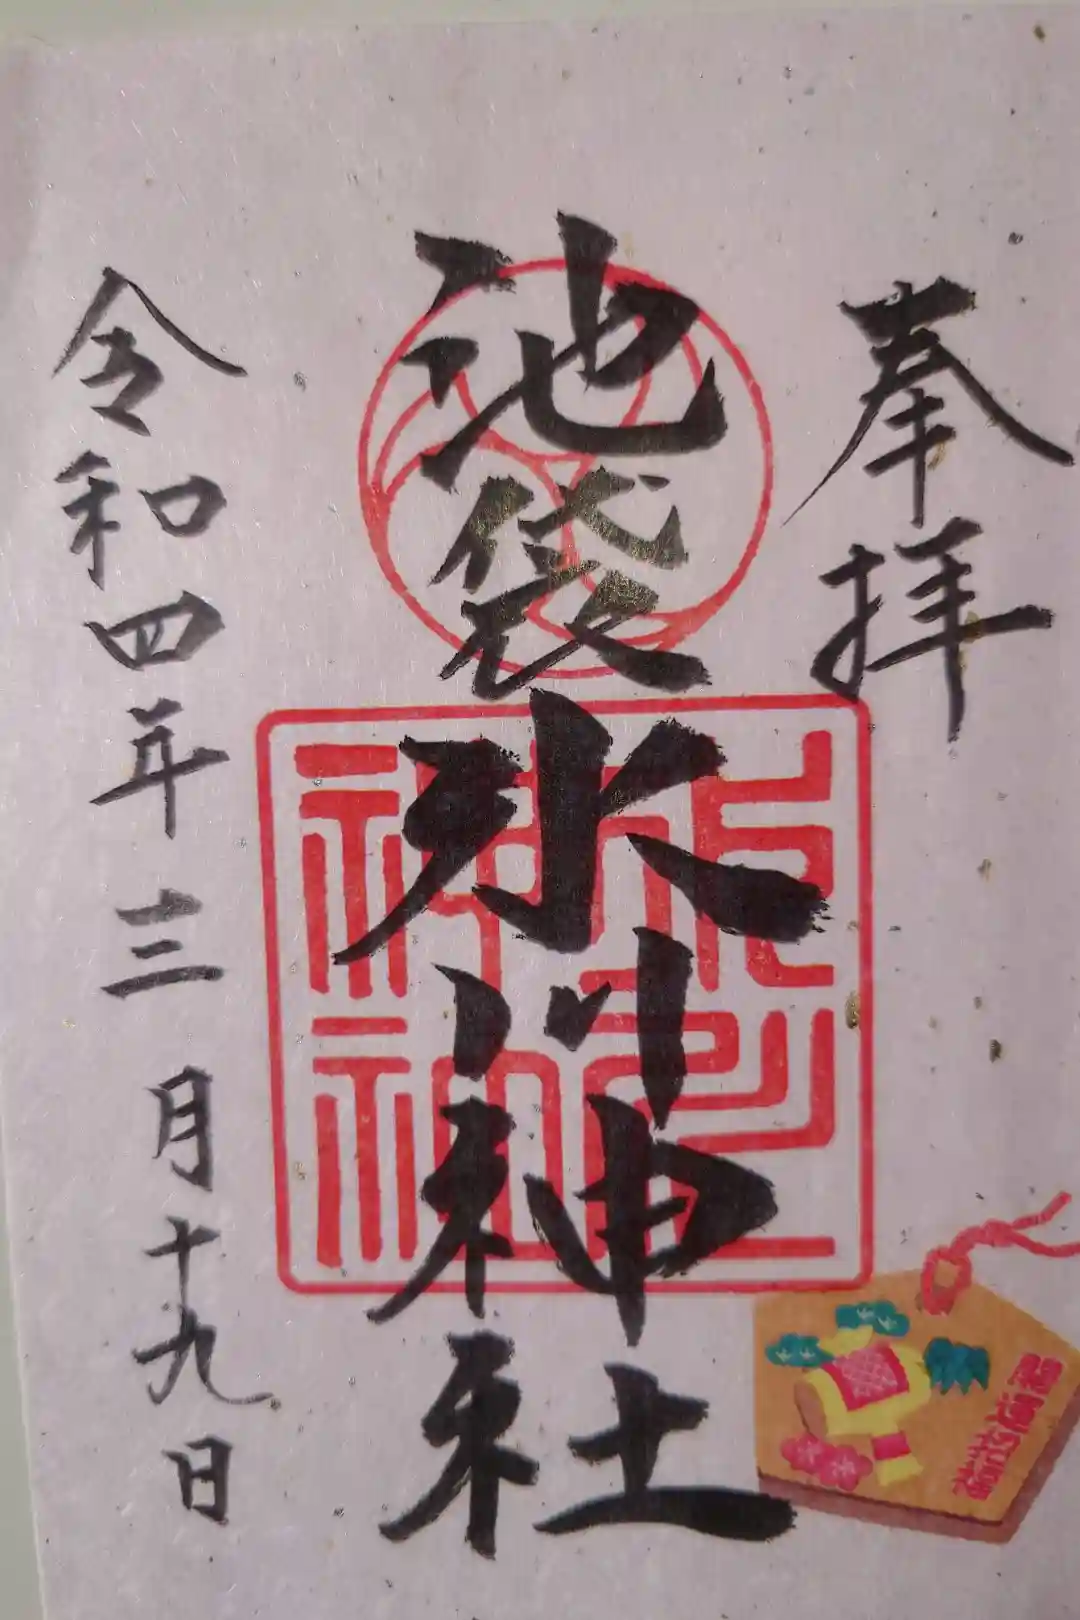 奉拝
池袋氷川神社
令和四年三月十九日
開運招福